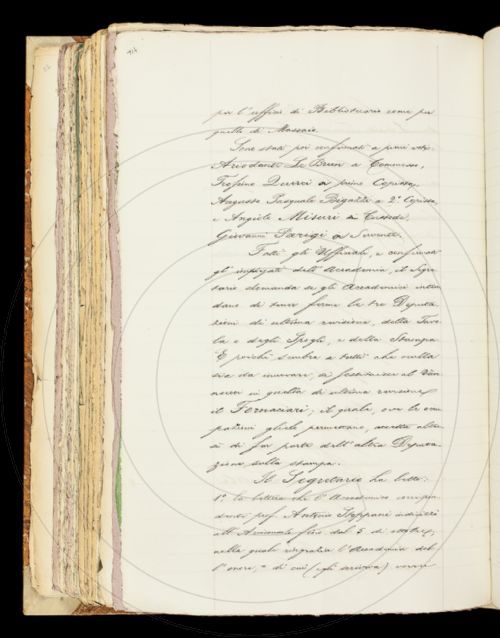 per l'uffizio di Bibliotecario come per
quello di Massaio.
Sono stati poi confermati a pieni voti
Ariodante Le Brun a Commesso,
Trofimo Querci a primo Copista,
Augusto Pasquale Bigazzi a 2º Copista,
e Angiolo Misuri a Custode,
Giovanni Parigi a Servente.
Fatti gli Uffiziali, e confermati
gl'impiegati dell'Accademia, il Segre
tario domanda se gli Accademici inten
dano di tener ferme le tre Deputa
zioni di ultima revisione, della Tavo
la e degli Spogli, e della Stampa.
E poichè sembra a tutti che nulla
sia da innovare, si sostituisce al Van
nucci in quella di ultima revisione
il Fornaciari; il quale, ove le occu
pazioni glielo permettano, accetta altre
sì di far parte dell'altra Deputa
zione sulla stampa.
Il Segretario ha letto:
1º la lettera che l'Accademico corrispon
dente prof. Antonio Stoppani indirizzò
all'Arciconsolo fino dal 5 di ottobre,
nella quale ringrazia l'Accademia del
l'onore, di cui (egli scriveva) venne